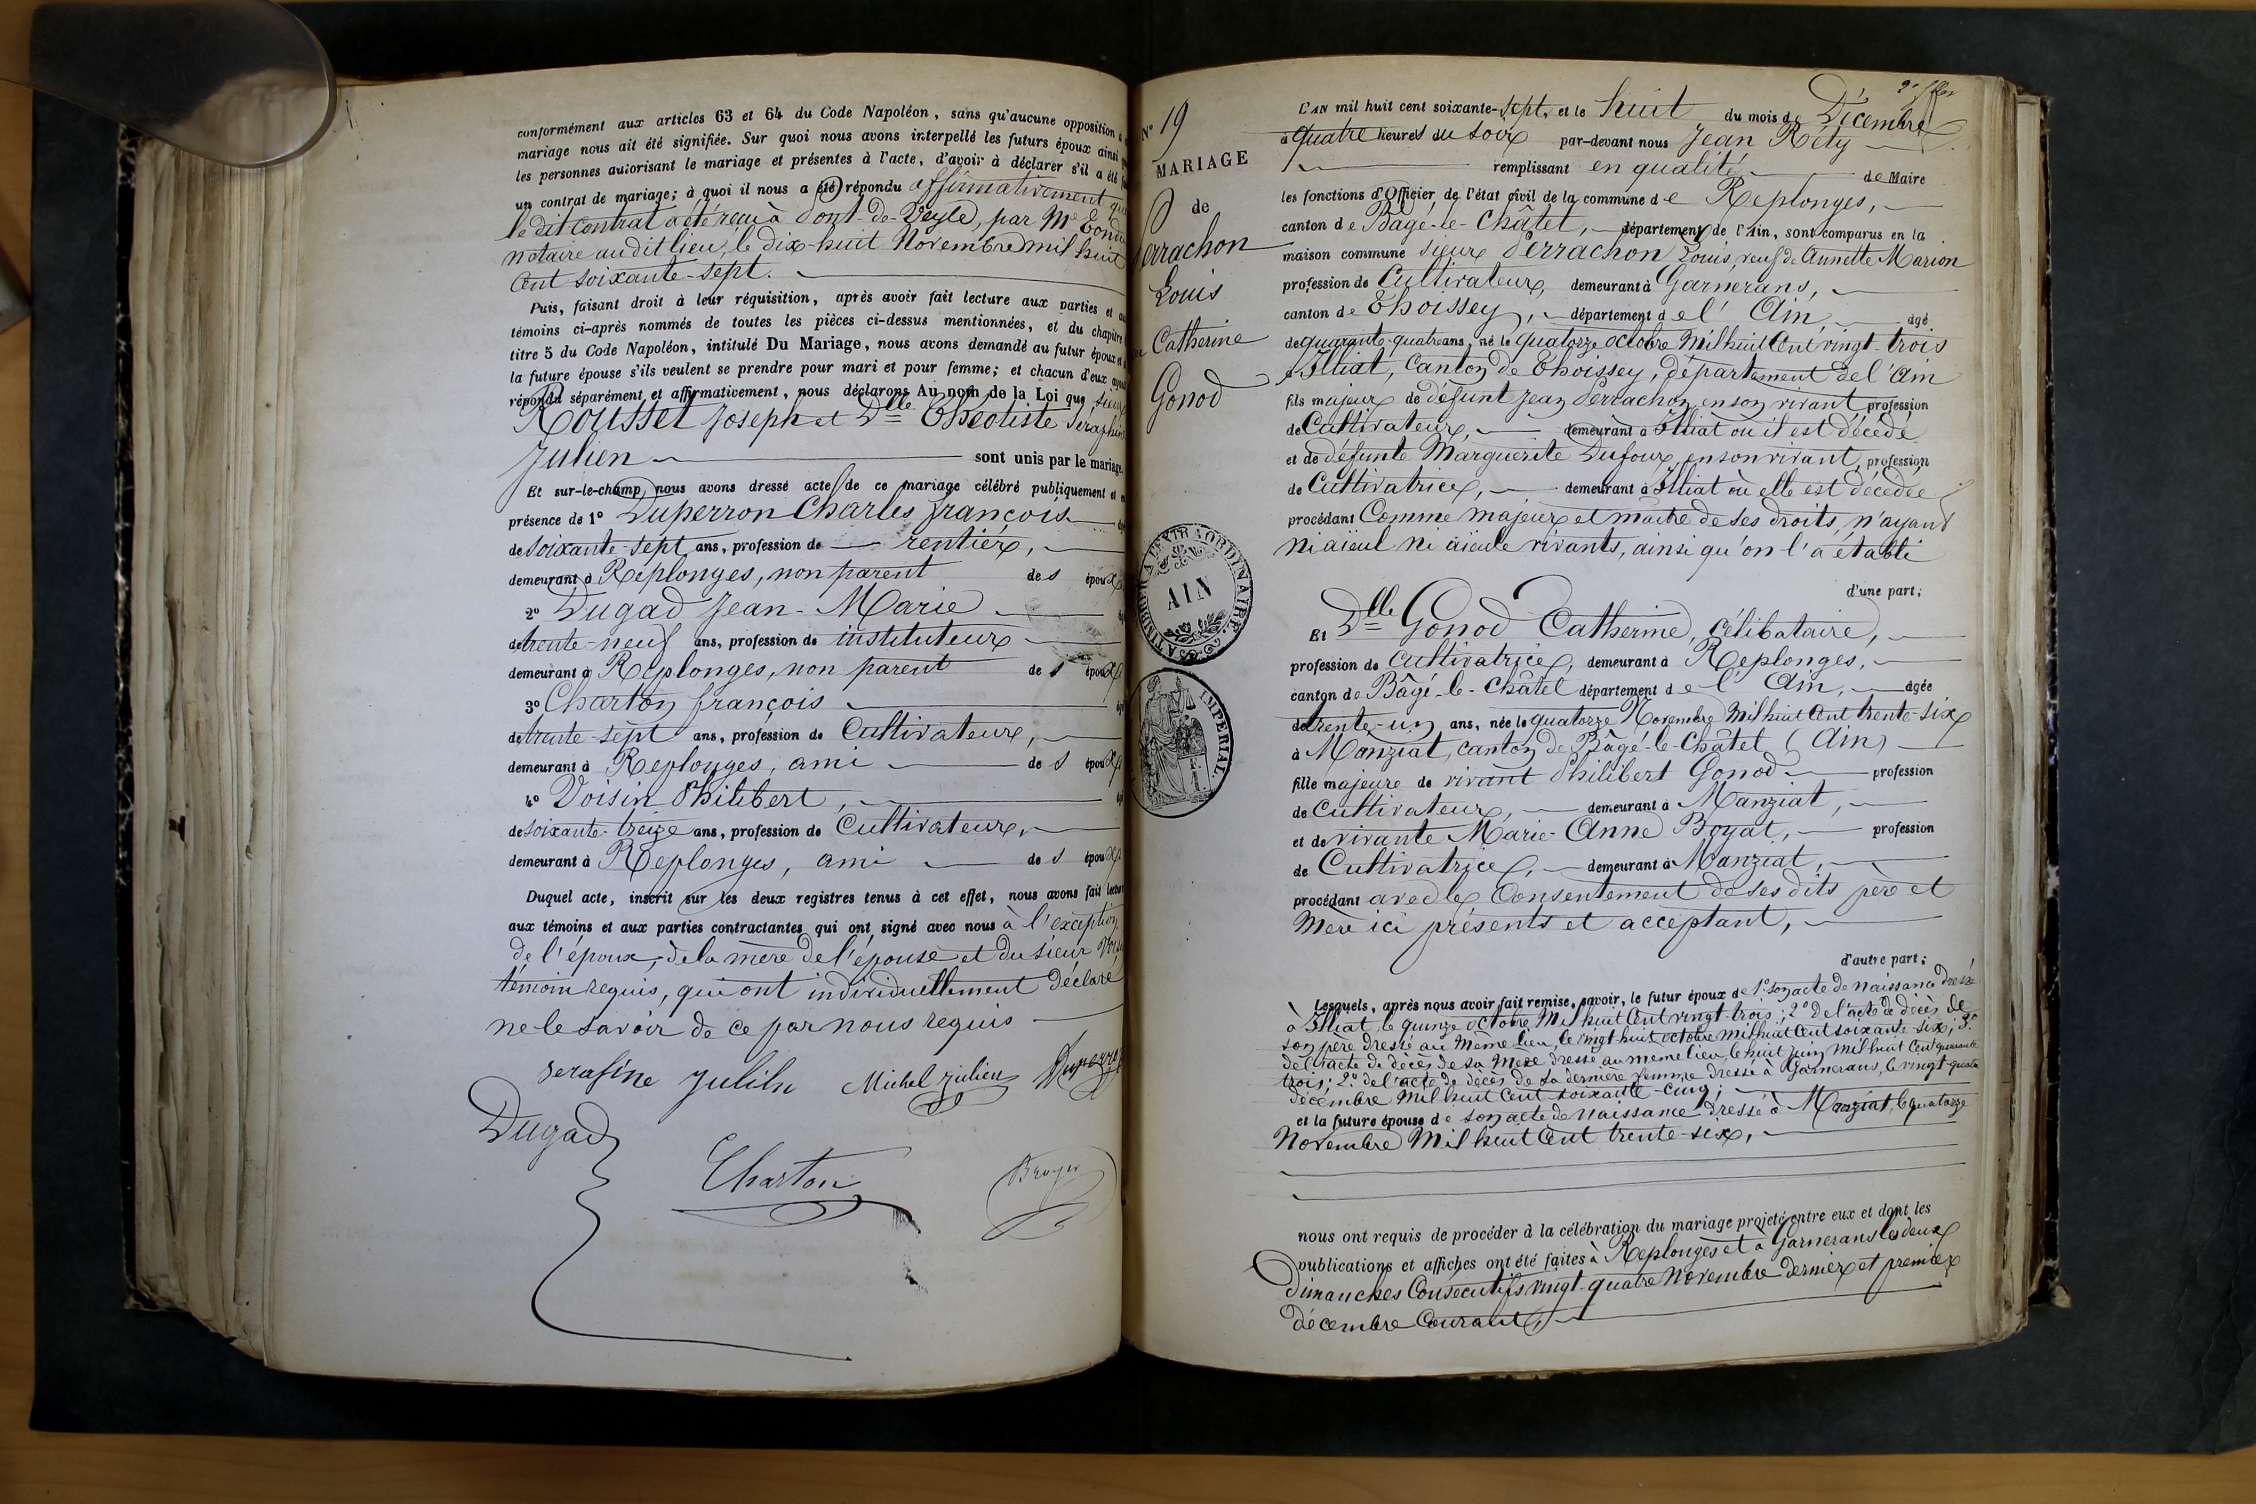 conformément aux articles 63 et 64 du Code Napoléon, sans qu'aucune opposition
mariage nous ait été signifiée. Sur quoi nous avons interpellé les futurs époux ainsi
les personnes autorisant le mariage et présentes à l'acte, d'avoir à déclarer s'il a été
un contrat de mariage; à quoi il nous a été répondu affirmativement que
le dit contrat a été reçu à Pont-de-Veyle, par Me
notaire au dit lieu, le dix-huit Novembre mil huit
cent soixante-sept.
Puis, faisant droit à leur réquisition, après avoir fait lecture aux parties et
témoins ci-après nommés de toutes les pièces ci-dessus mentionnées, et du chapitre
titre 5 du Code Napoléon, intitulé Du Mariage, nous avons demandé au futur époux et
la future épouse s'ils veulent se prendre pour mari et pour femme; et chacun d'eux ayant
répondu séparément et affirmativement, nous déclarons Au nom de la Loi que sieur
Rousset Joseph et Dlle Théotiste Séraphine
Julien sont unis par le mariage.
Et sur-le-champ, nous avons dressé acte de ce mariage célébré publiquement et en
présence de 1° Duperron Charles François
de soixante-sept ans, profession de rentier,
demeurant à Replonges, non parent des époux
2° Dugad Jean-Marie
de trente-neuf ans, profession de instituteur
demeurant à Replonges, non parent des époux
3° Charton françois
de trente-sept ans, profession de Cultivateur,
demeurant à Replonges, ami des époux
4° Voisin Philibert,
de soixante-treize ans, profession de Cultivateur,
demeurant à Replonges, ami des époux
Duquel acte, inscrit sur les deux registres tenus à cet effet, nous avons fait lecture
aux témoins et aux parties contractantes qui ont signé avec nous à l'exception
de l'époux, de la mère de l'épouse et du sieur
témoin requis, qui ont individuellement déclaré
ne le savoir de ce par nous requis
serafine Julien Michel Julien Duperron
Dugad
Charton Broyer
N° 19
MARIAGE
de
Perrachon
Louis
Catherine
Gonod
TIMBRE A L'EXTRAORDINAIRE
AIN
IMPÉRIAL
L'AN mil huit cent soixante-sept, et le huit du mois de Décembre
à quatre heures du soir par-devant nous Jean Réty
remplissant en qualité de Maire
les fonctions d'Officier de l'état civil de la commune de Replonges,
canton de Bâgé-le-Châtel, département de l'Ain, sont comparus en la
maison commune sieur Perrachon Louis, veuf de Annette Marion
profession de Cultivateur, demeurant à Garnerans,
canton de Thoissey, département de l'Ain, âgé
de quarante-quatre ans, né le quatorze octobre mil huit cent vingt-trois
à Illiat, canton de Thoissey, département de l'Ain
fils majeur de défunt Jean Perrachon, en son vivant, profession
de Cultivateur, demeurant à Illiat où il est décédé
et de défunte Marguerite Dufour, en son vivant, profession
de Cultivatrice, demeurant à Illiat où elle est décédée
procédant Comme majeur et maître de ses droits, n'ayant
ni aïeul ni aïeule vivants, ainsi qu'on l'a établi
d'une part;
Et Dlle Gonod Catherine, célibataire,
profession de cultivatrice, demeurant à Replonges,
canton de Bâgé-le-Châtel département de l'Ain, âgée
de trente-un ans, née le quatorze Novembre mil huit cent trente-six
à Manziat, canton de Bâgé-le-Châtel (Ain)
fille majeure de vivant Philibert Gonod profession
de Cultivateur, demeurant à Manziat,
et de vivante Marie-Anne Boyat, profession
de Cultivatrice, demeurant à Manziat,
procédant avec le Consentement de ses dits père et
mère ici présents et acceptant,
d'autre part;
Lesquels, après nous avoir fait remise, savoir, le futur époux de 1° son acte de naissance dressé
à Illiat, le quinze octobre mil huit cent vingt-trois; 2° de l'acte de décès de
son père dressé au même lieu, le vingt-huit octobre mil huit cent soixante-six; 3°
de l'acte de décès de sa mère dressé au même lieu, le huit juin mil huit cent quarante
trois; 2° de l'acte de décès de sa dernière femme dressé à Garnerans, le vingt-quatre
décembre mil huit cent soixante-cinq;
et la future épouse de son acte de naissance dressé à Manziat, le quatorze
Novembre mil huit cent trente-six,
nous ont requis de procéder à la célébration du mariage projeté entre eux et dont les
publications et affiches ont été faites à Replonges et à Garnerans les deux
dimanches consécutifs vingt-quatre Novembre dernier et premier
décembre courant,